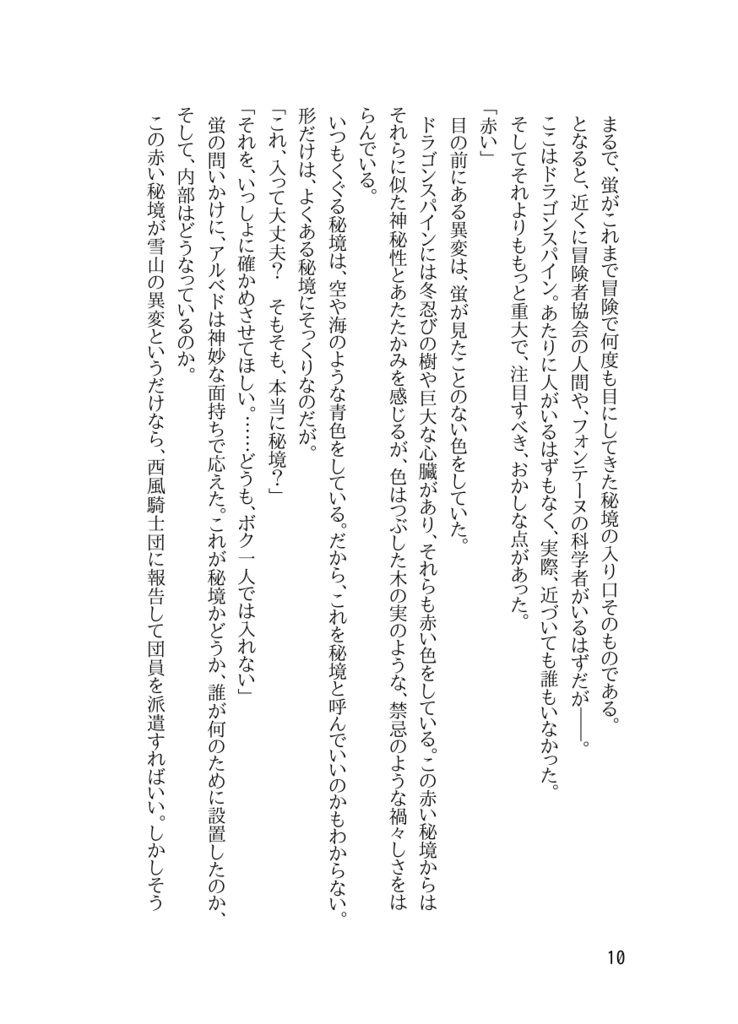 まるで、蛍がこれまで冒険で何度も目にしてきた秘境の入り口そのものである。
となると、近くに冒険者協会の人間や、フォンテーヌの科学者がいるはずだが――。
ここはドラゴンスパイン。あたりに人がいるはずもなく、実際、近づいても誰もいなかった。
そしてそれよりももっと重大で、注目すべき、おかしな点があった。
「赤い」
目の前にある異変は、蛍が見たことのない色をしていた。
ドラゴンスパインには冬忍びの樹や巨大な心臓があり、それらも赤い色をしている。この赤い秘境からは
それらに似た神秘性とあたたかみを感じるが、色はつぶした木の実のような、禁忌のような禍々しさをは
らんでいる。
いつもくぐる秘境は、空や海のような青色をしている。だから、これを秘境と呼んでいいのかもわからない。
形だけは、よくある秘境にそっくりなのだが。
「これ、入って大丈夫？　そもそも、本当に秘境？」
「それを、いっしょに確かめさせてほしい。……どうも、ボク一人では入れない」
蛍の問いかけに、アルベドは神妙な面持ちで応えた。これが秘境かどうか、誰が何のために設置したのか、
そして、内部はどうなっているのか。
この赤い秘境が雪山の異変というだけなら、西風騎士団に報告して団員を派遣すればいい。しかしそう
10